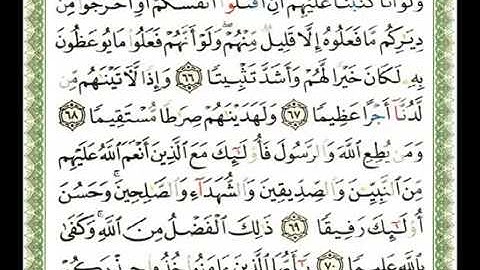 وَلَوْ أَنَّا كَتَبْنَا عَلَيْهِمْ أَنِ ٱقْتُلُوٓا۟ أَنفُسَكُمْ أَوِ ٱخْرُجُوا۟ مِن
دِيَـٰرِكُم مَّا فَعَلُوهُ إِلَّا قَلِيلٌ مِّنْهُمْ ۖ وَلَوْ أَنَّهُمْ فَعَلُوا۟ مَا يُوعَظُونَ
بِهِۦ لَكَانَ خَيْرًا لَّهُمْ وَأَشَدَّ تَثْبِيتًا ٦٦ وَإِذًا لَّـَٔاتَيْنَـٰهُم مِّن
لَّدُنَّآ أَجْرًا عَظِيمًا ٦٧ وَلَهَدَيْنَـٰهُمْ صِرَٰطًا مُّسْتَقِيمًا ٦٨
وَمَن يُطِعِ ٱللَّهَ وَٱلرَّسُولَ فَأُو۟لَـٰٓئِكَ مَعَ ٱلَّذِينَ أَنْعَمَ ٱللَّهُ عَلَيْهِم
مِّنَ ٱلنَّبِيِّـۧنَ وَٱلصِّدِّيقِينَ وَٱلشُّهَدَآءِ وَٱلصَّـٰلِحِينَ ۚ وَحَسُنَ
أُو۟لَـٰٓئِكَ رَفِيقًا ٦٩ ذَٰلِكَ ٱلْفَضْلُ مِنَ ٱللَّهِ ۚ وَكَفَىٰ
بِٱللَّهِ عَلِيمًا ٧٠ يَـٰٓأَيُّهَا ٱلَّذِينَ ءَامَنُوا۟ خُذُوا۟ حِذْرَكُمْ